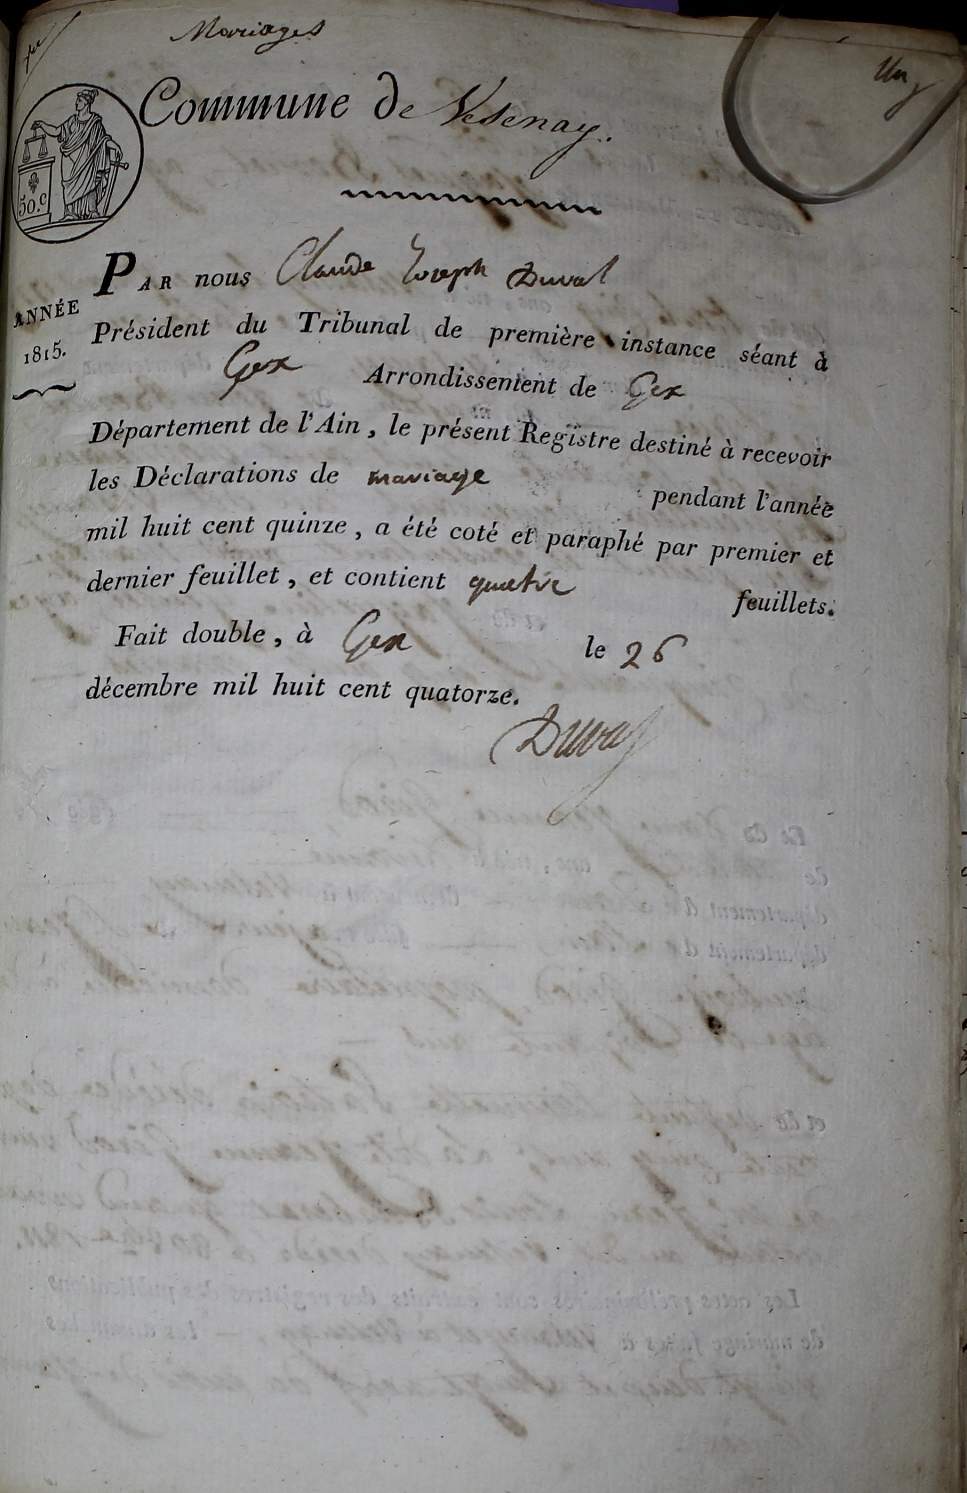 Mariages
Un
Commune de Vesenay.
50.c
ANNÉE
1815.
PAR nous Claude Joseph Duval
Président du Tribunal de première instance séant à
Gex Arrondissement de Gex
Département de l'Ain, le présent Registre destiné à recevoir
les Déclarations de mariage pendant l'année
mil huit cent quinze, a été coté et paraphé par premier et
dernier feuillet, et contient quatre feuillets.
Fait double, à Gex le 26
décembre mil huit cent quatorze.
Duval